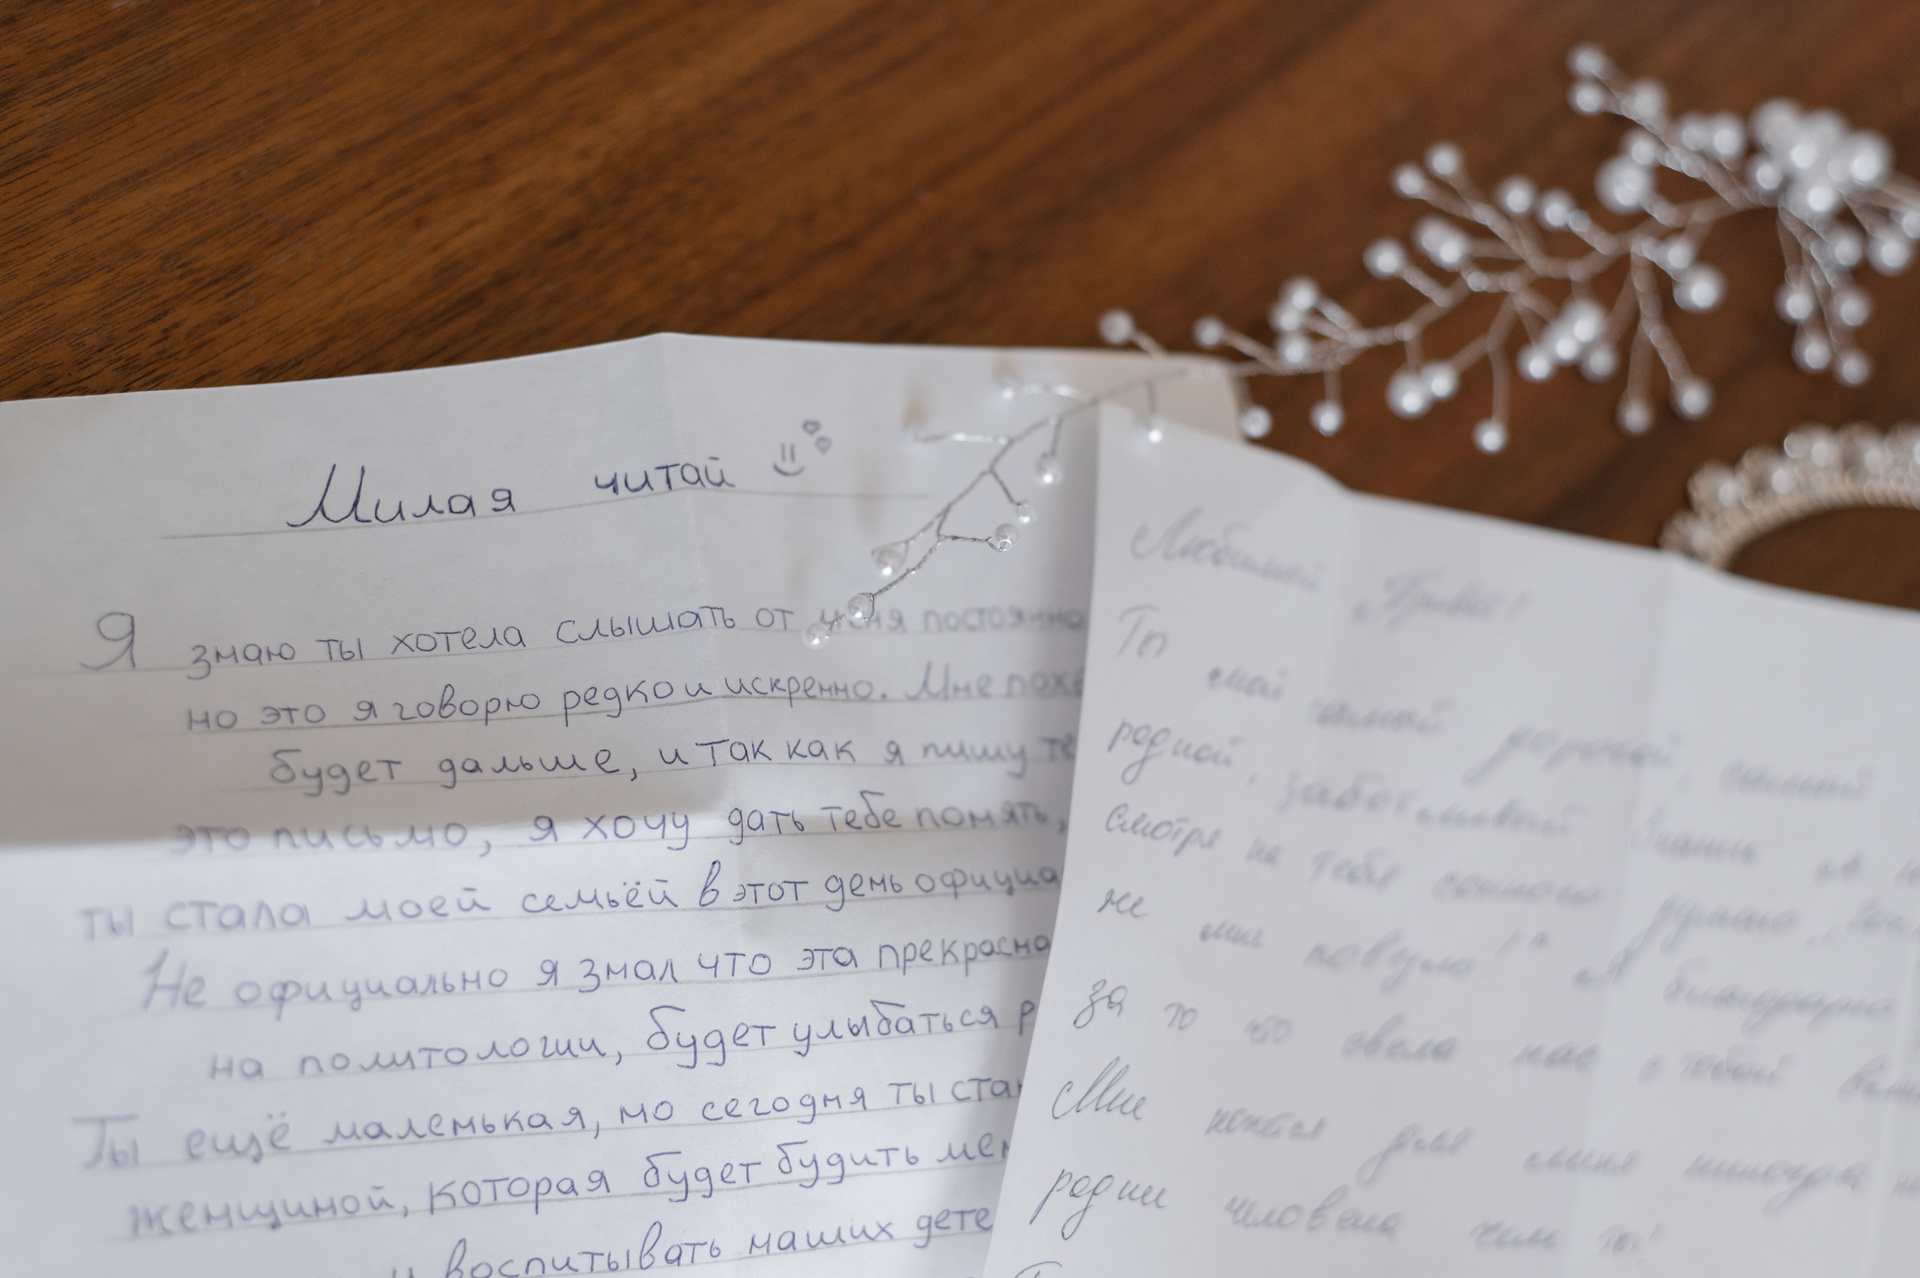 Милая читай
Я знаю ты хотела слышать от меня постоянно
но это я говорю редко и искренно. Мне
будет дальше, и так как я пишу
это письмо, я хочу дать тебе понять,
ты стала моей семьёй в этот день официа
Не официально я знал что эта прекрасна
на политологии, будет улыбаться р
Ты ещё маленькая, но сегодня ты ста
женщиной, которая будет будить
и воспитывать наших дете
Любимый Привет!
Ты мой самый дорогой, самый
родной, заботливый. Знаешь
смотря на тебя сонного думаю,
же мне повезло" Я благодарна
за то что свела нас с тобой
Мне кажется для меня никогда
родни человека чем ты!